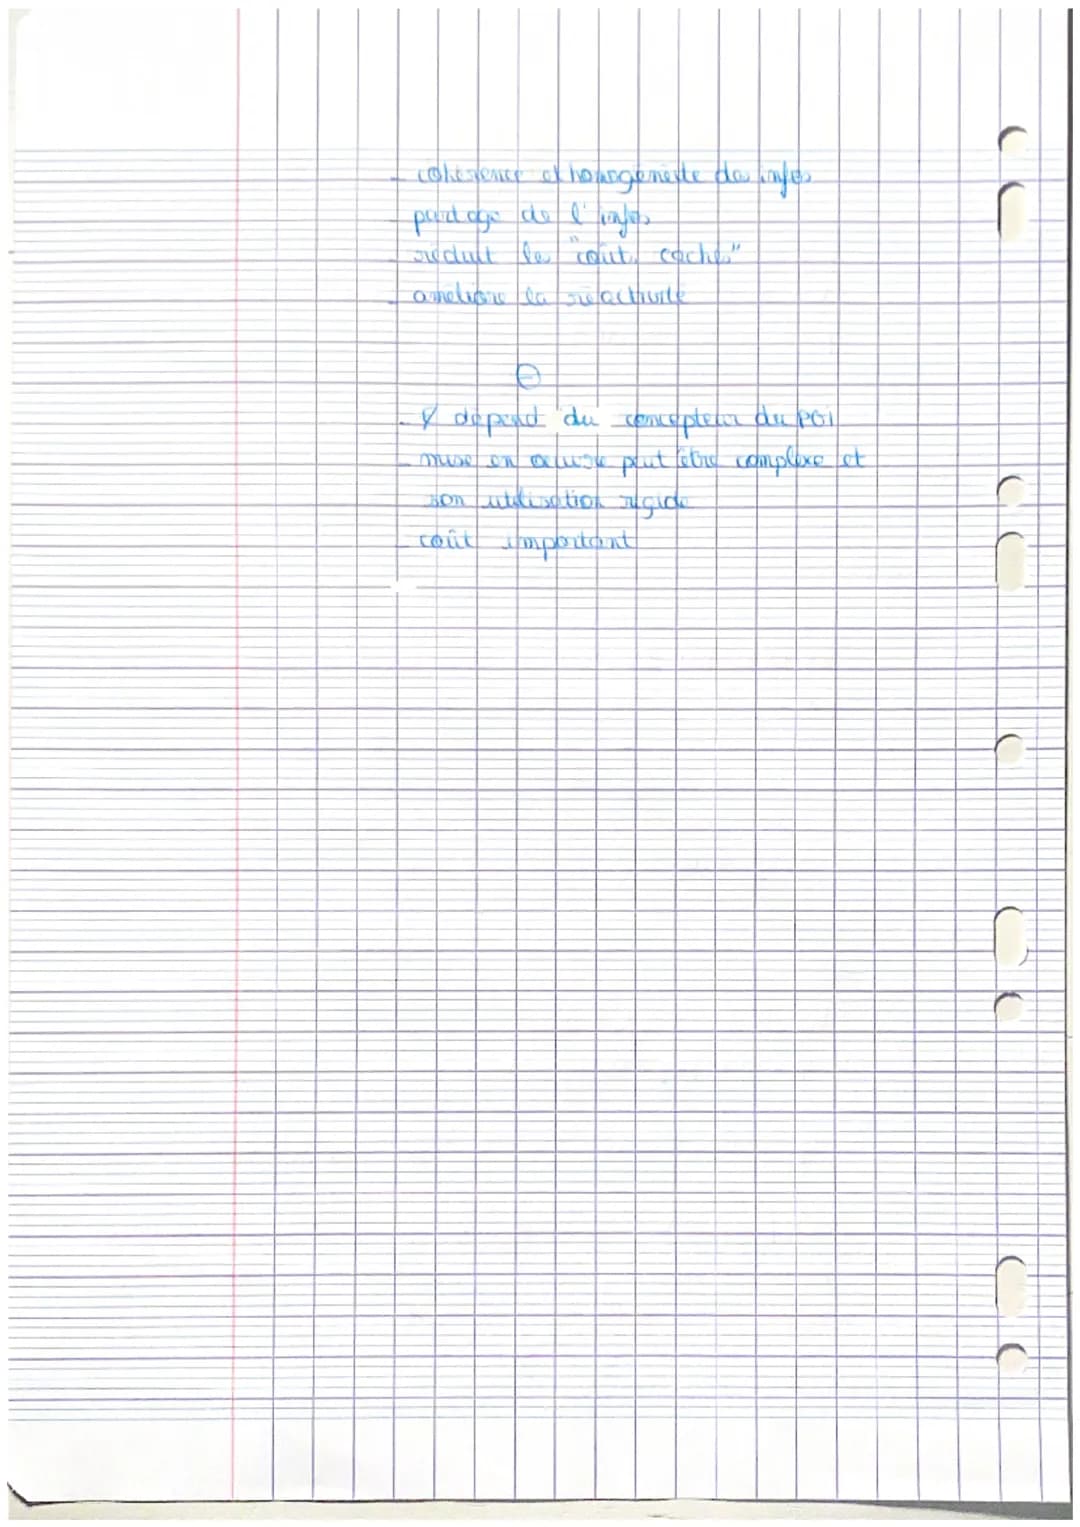 - cohérence et homogénéité des infos
partage de l'infos
réduit les "coûts cachés"
- améliore la réactivité
⊖
- dépend du concepteur du PGI
- mise en œuvre peut être complexe et
son utilisation rigide
- coût important